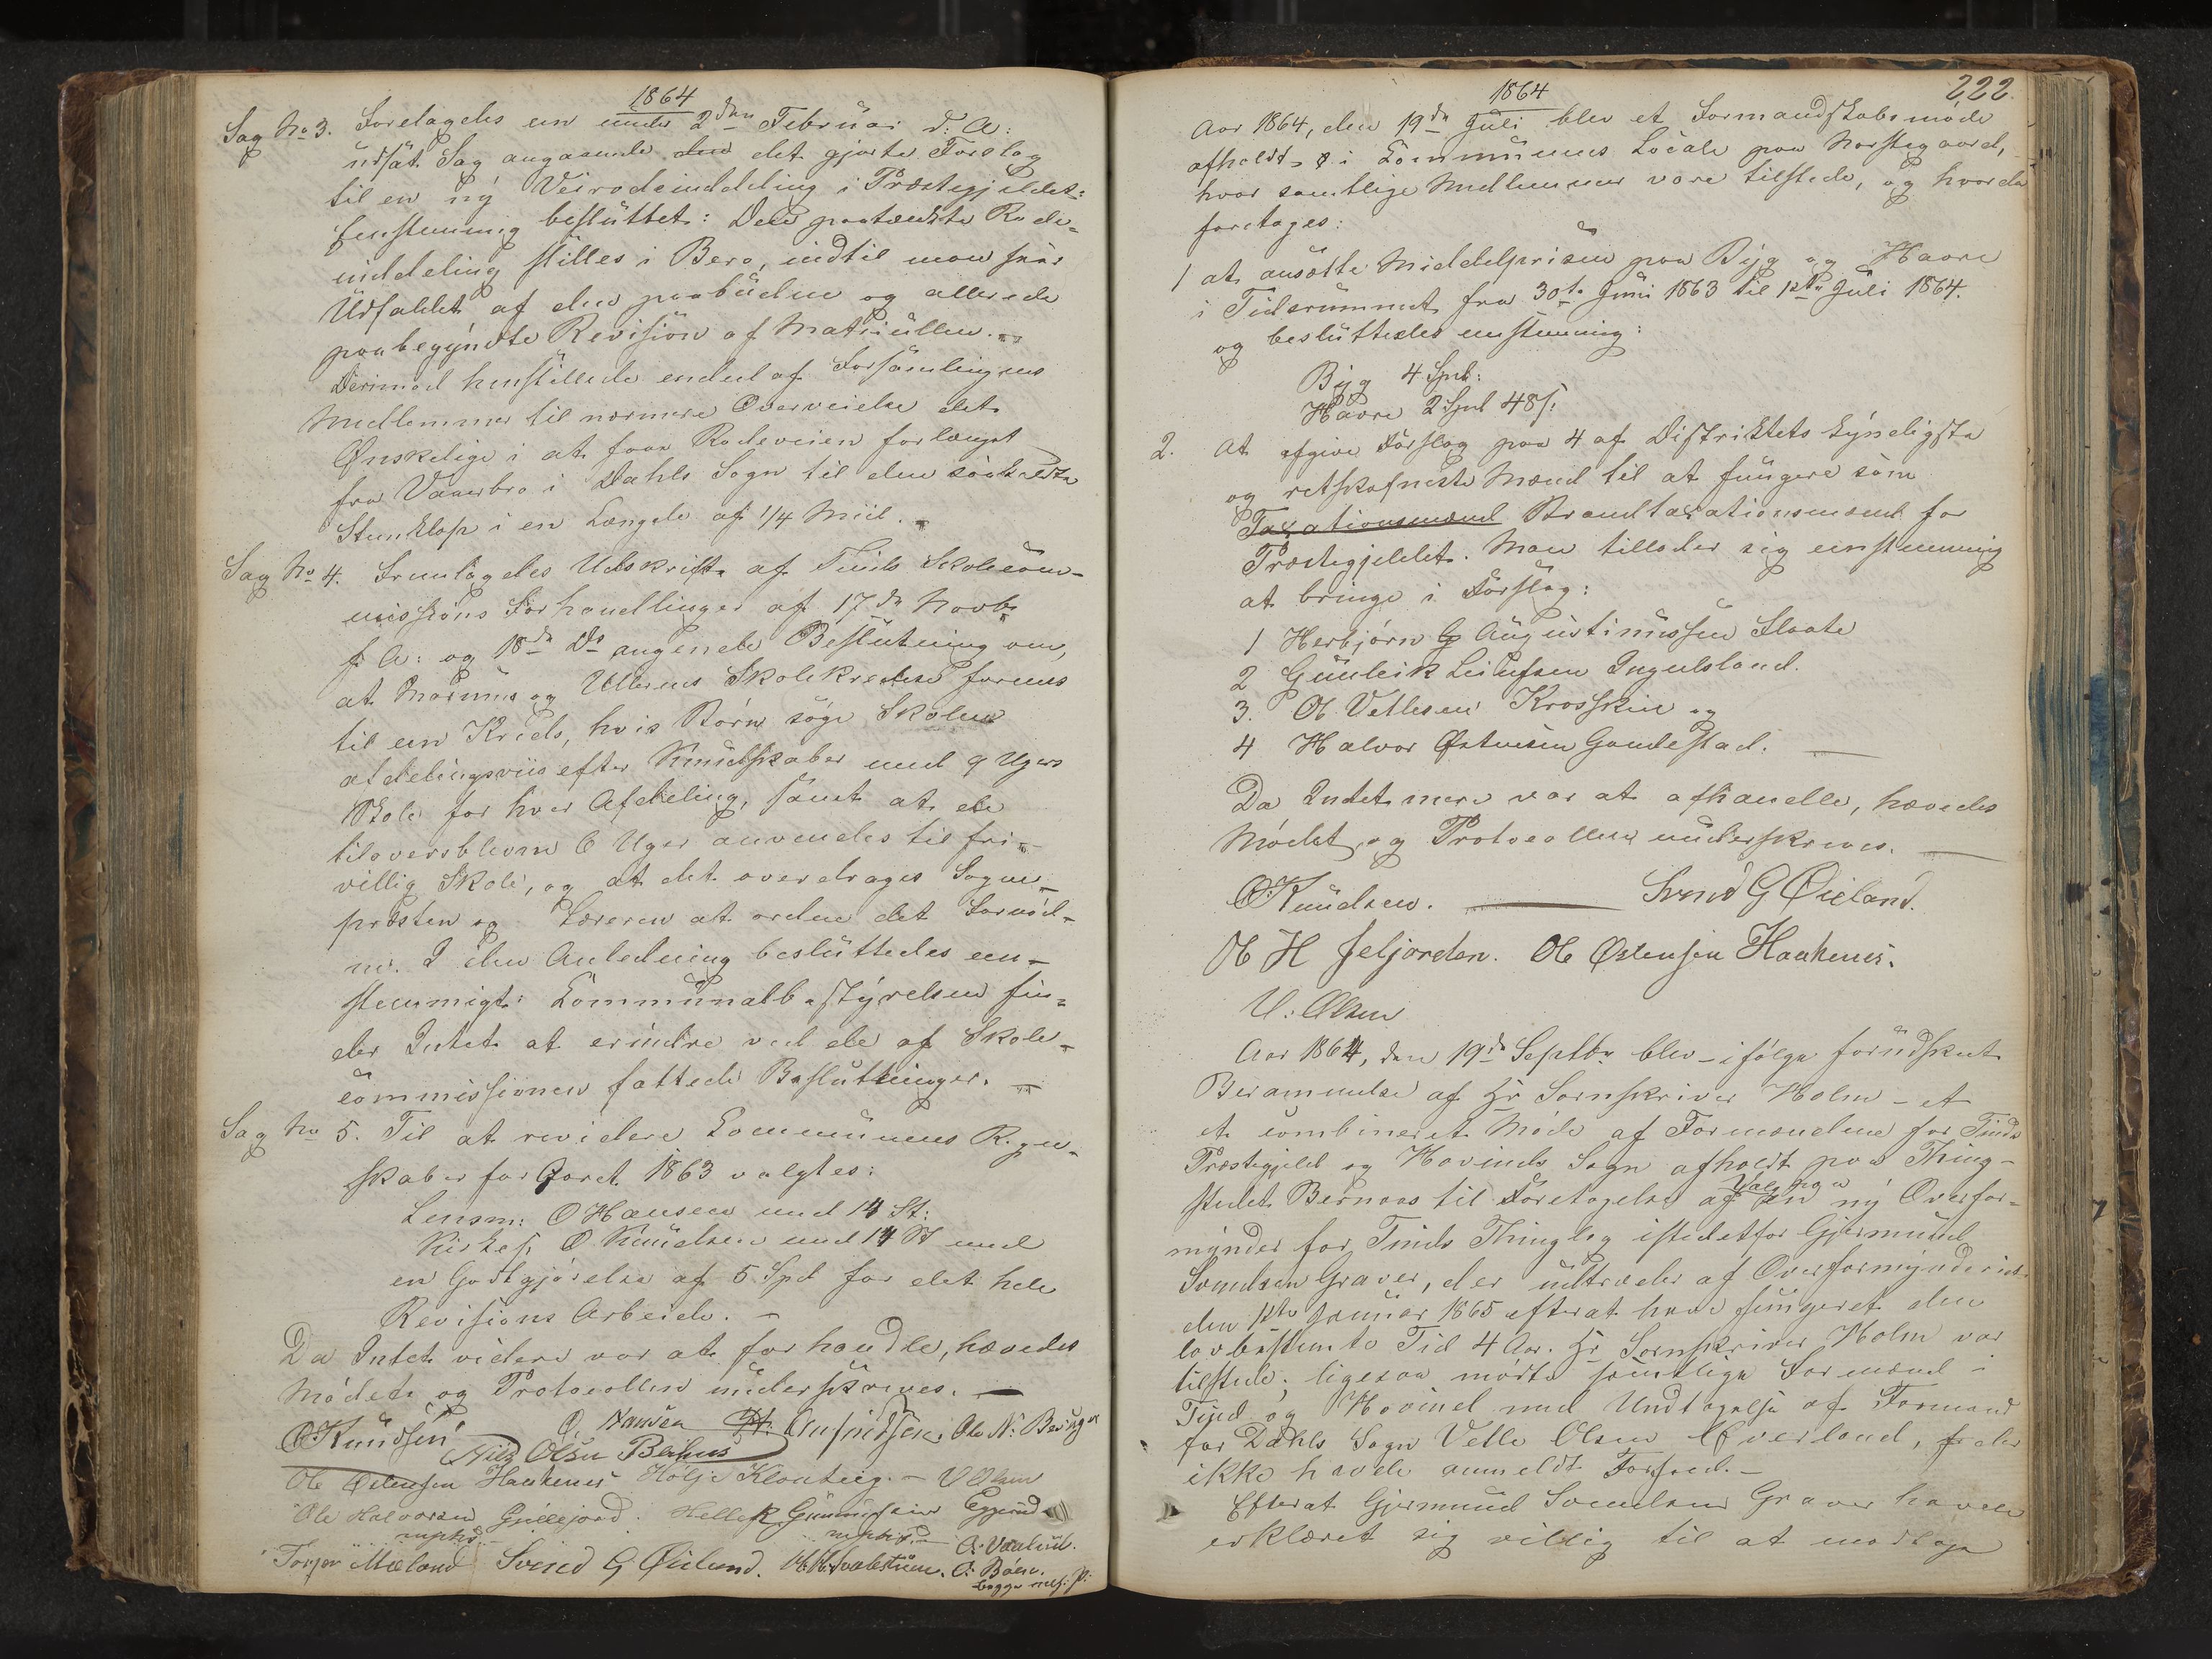 1864
Sag No 3. Foretagdes en under 2den Februar d: A:
udsat Sag angaaende den det gjorte Forslag
til en ny Veirodeinddeling i Præstegjeldet:
Eenstemmig besluttet: Den paatænkte Rode-
inddeling stilles i Bero, indtil man seer
Udfaldet af den paabudne og allerede
paabegyndte Revision af Matriculen.
Derimod henstillede endeel af Forsamlingens
Medlemmer til nærmere Overveielse det
Ønskelige i at faae Rodeveien forlænget
fra Vaaerbro i Dahls Sogn til den saakaldte
Steenklop i en Længde af 1/4 Miil.
Sag No 4. Fremlagdes Udskrift af Tinds Skolecom-
missions Forhandlinger af 17de Novbr
f. A: og 18de Do angaaende Beslutning om,
at Marums og Ullerens Skolekredse forenes
til een Kreds, hvis Børn søge Skolen
afdelingsviis efter Kundskaber med 9 Ugers
Skole for hver Afdeling, samt at de
tiloversblevne 6 Uger anvendes til fri-
villig Skole, og at det overdrages Sogne-
præsten og Læreren at ordne det Fornød-
ne. I den Anledning besluttedes een-
stemmigt: Communalbestyrelsen fin-
der Intet at erindre ved de af Skole-
commissionen fattede Beslutninger.
Sag No 5. Til at revidere Communens Regn-
skaber for Aaret 1863 valgtes:
Lensm: O Hansen med 14 St:
Kirkes. O. Knudsen med 14 St med
en Godtgjørelse af 5 Spd for det hele
Revisions Arbeide.
Da Intet videre var at forhandle, hævedes
Mødet og Protocollen underskreves.
OKnudsen O. Hansen H: Ole N: Berge
Nils Olsen Berhus
Ole Østensen Haukenes Hølje Kloateig. V Olsen
Ole Halvorsen Gullejord. Hellek Gunnufsen Eggerud
mphp. mphp. O: Vaalid.
Torger Mæland Svend G Øieland. O: Bøen.
begge m. f. P:
1864
222.
Aar 1864, den 19de Juli blev et Formandskabsmøde
afholdt i Communens Locale paa Marstegaard,
hvor samtlige Medlemmer vare tilstede, og hvor da
foretoges:
1 at ansætte Middelprisen paa Byg og Havre
i Tidsrummet fra 30te Juni 1863 til 1ste Juli 1864.
og besluttedes enstemmig:
Byg 4 Spd:
Havre 2 Spd 48 s:
2. At afgive Forslag paa 4 af Distriktets kyndigste
og retskafneste Mænd til at fungere som
Taxationsmænd Brandtaxationsmænd for
Præstegjeldet. Man tillader sig eenstemmig
at bringe i Forslag:
1 Herbjørn G Augustinussen Flaate
2 Gunleik Leilufsen Ingulsland.
3. Ol. Vetlesen Krosskin og
4 Halvor Østensen Gandestad.
Da Intet mere var at afhandle, hævedes
Mødet og Protocollen underskreves.
OKnudsen. Svend G Øieland.
Ol H Seljorden. Ole Østensen Haukenes.
V: Olsen
Aar 1864, den 19de Septbr blev - ifølge forudskeet
Berammelse af Hr Sornskriver Holm - et
et combineret Møde af Formændene for Tinds
Præstegjeld og Hovinds Sogn afholdt paa Thing-
stedet Bernaas til Foretagelse af Valg paa en ny Overfor-
mynder for Tinds Thinglag istedetfor Gjermund
Svendsen Graver, der udtræder af Overformynderiet
den 1ste Januar 1865 efterat have fungeret den
lovbestemte Tid 4 Aar. Hr Sornskriver Holm var
tilstede; ligesaa mødte samtlige Formænd i
Tind og Hovind med Undtagelse af Formand
for Dahls Sogn Vetle Olsen Øverland, der
ikke havde anmeldt Forfald.
Efterat Gjermund Svendsen Graver havde
erklæret sig villig til at modtage